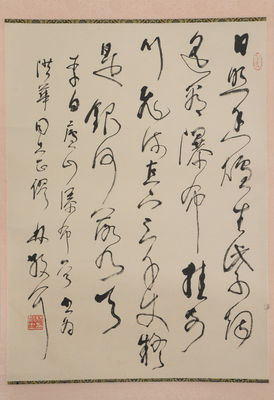 日照香爐生紫煙
遙看瀑布挂前
川飛流直下三千尺疑
是銀河落九天
李白廬山瀑布
洪華同志正